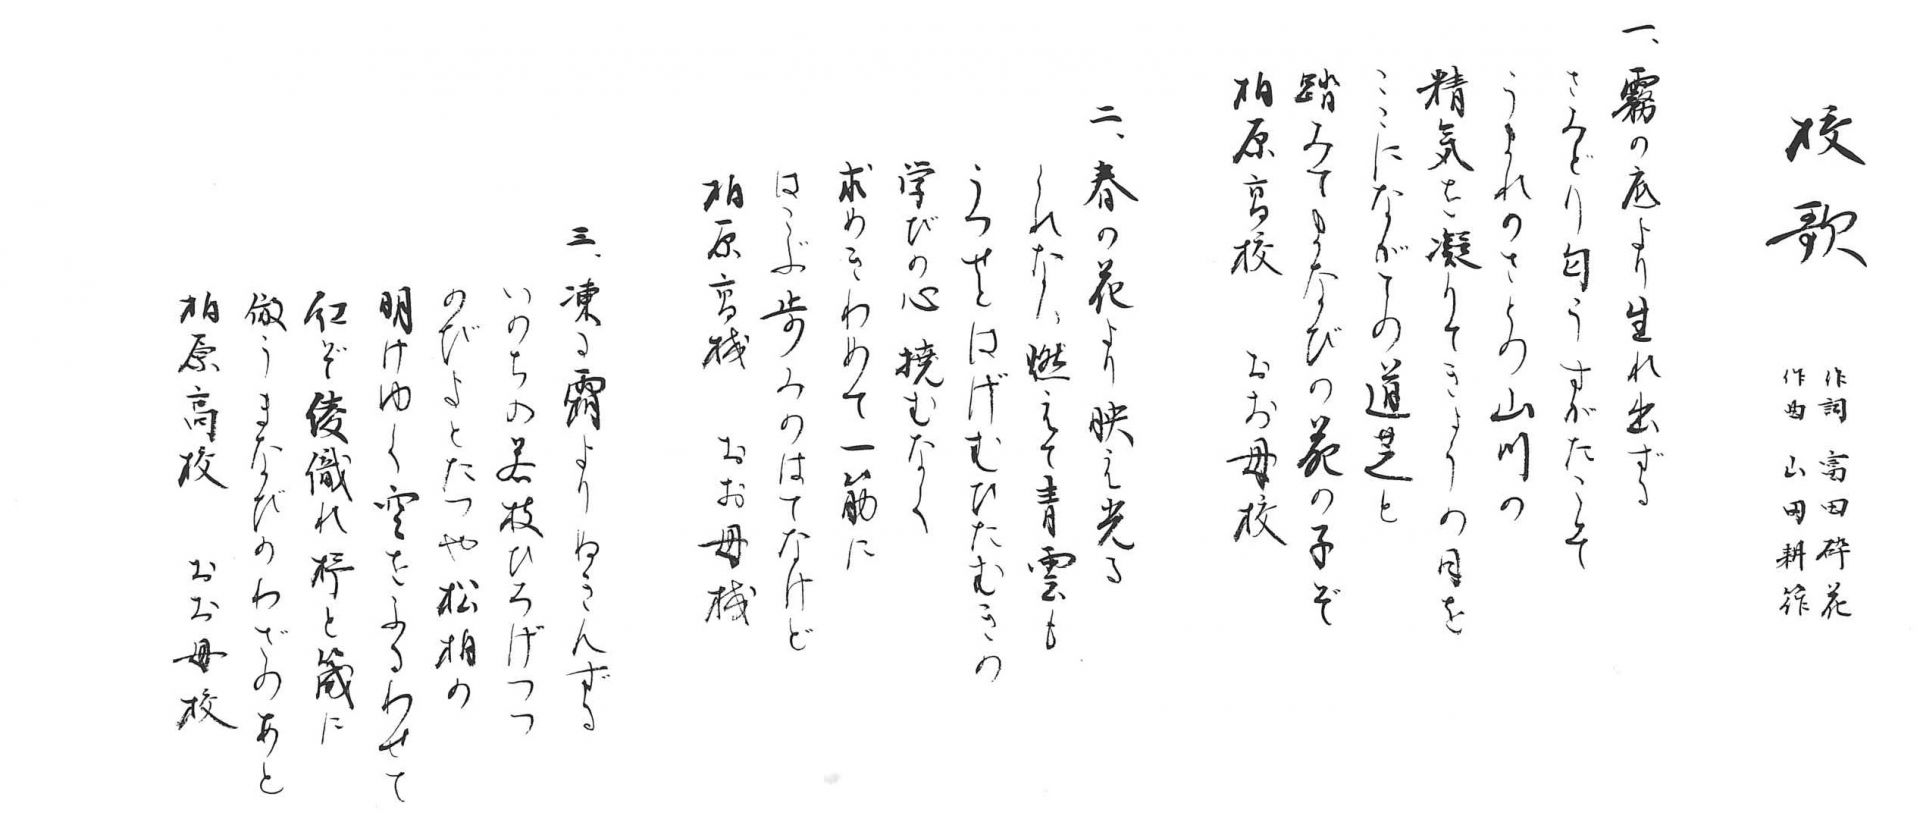 校歌
作詞 富田砕花
作曲 山田耕筰
一、霧の底より生れ出ずる
さみどり匂うすがたこそ
うまれのさとの山川の
精気を凝りてきょうの日を
ここにながての道芝と
踏みてまなびの苑の子ぞ
柏原高校 おお母校
二、春の花より映え光る
くれない燃えて青雲も
うつせとはげむひたむきの
学びの心 撓むなく
求めきわめて一筋に
はこぶ歩みのはてなけど
柏原高校 おお母校
三、凍る霜よりぬきんずる
いのちの若枝ひろげつつ
のびよとたつや松柏の
明けゆく空をふるわせて
紅ぞ綾織れ杼と筬に
倣うまなびのわざのあと
柏原高校 おお母校